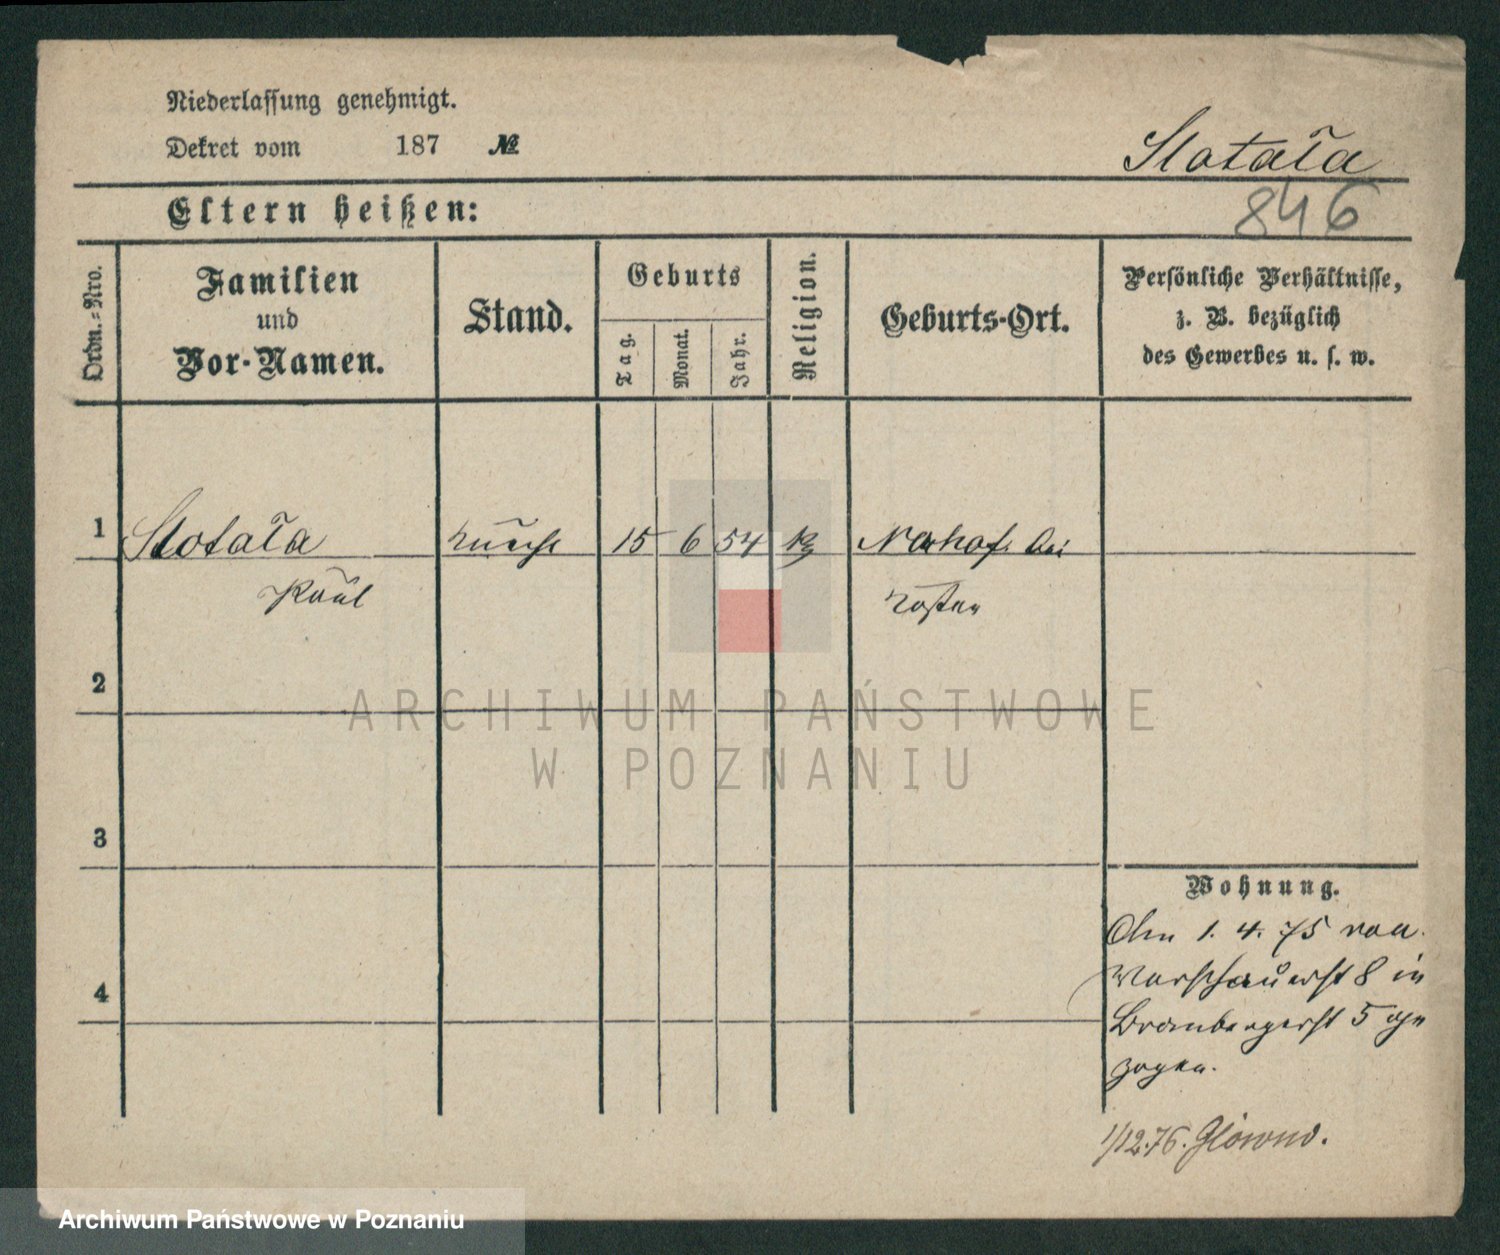 Niederlassung genehmigt.
Dekret vom 187 №
Slotała
846
Eltern heißen:
Ordn.-Nro.
Familien
und
Vor-Namen.
Stand.
Geburts
Tag.
Monat.
Jahr.
Religion.
Geburts-Ort.
Persönliche Verhältnisse,
z. B. bezüglich
des Gewerbes u. s. w.
1 Slotała 15 6 54 bei
Paul Kosten
2
ARCHIWUM PAŃSTWOWE
W POZNANIU
3
4
Wohnung.
Am 1. 4. 75 von
Warschauerst 8 in
Brombergerst 5 ge
zogen.
1/12.76. Glowno.
Archiwum Państwowe w Poznaniu